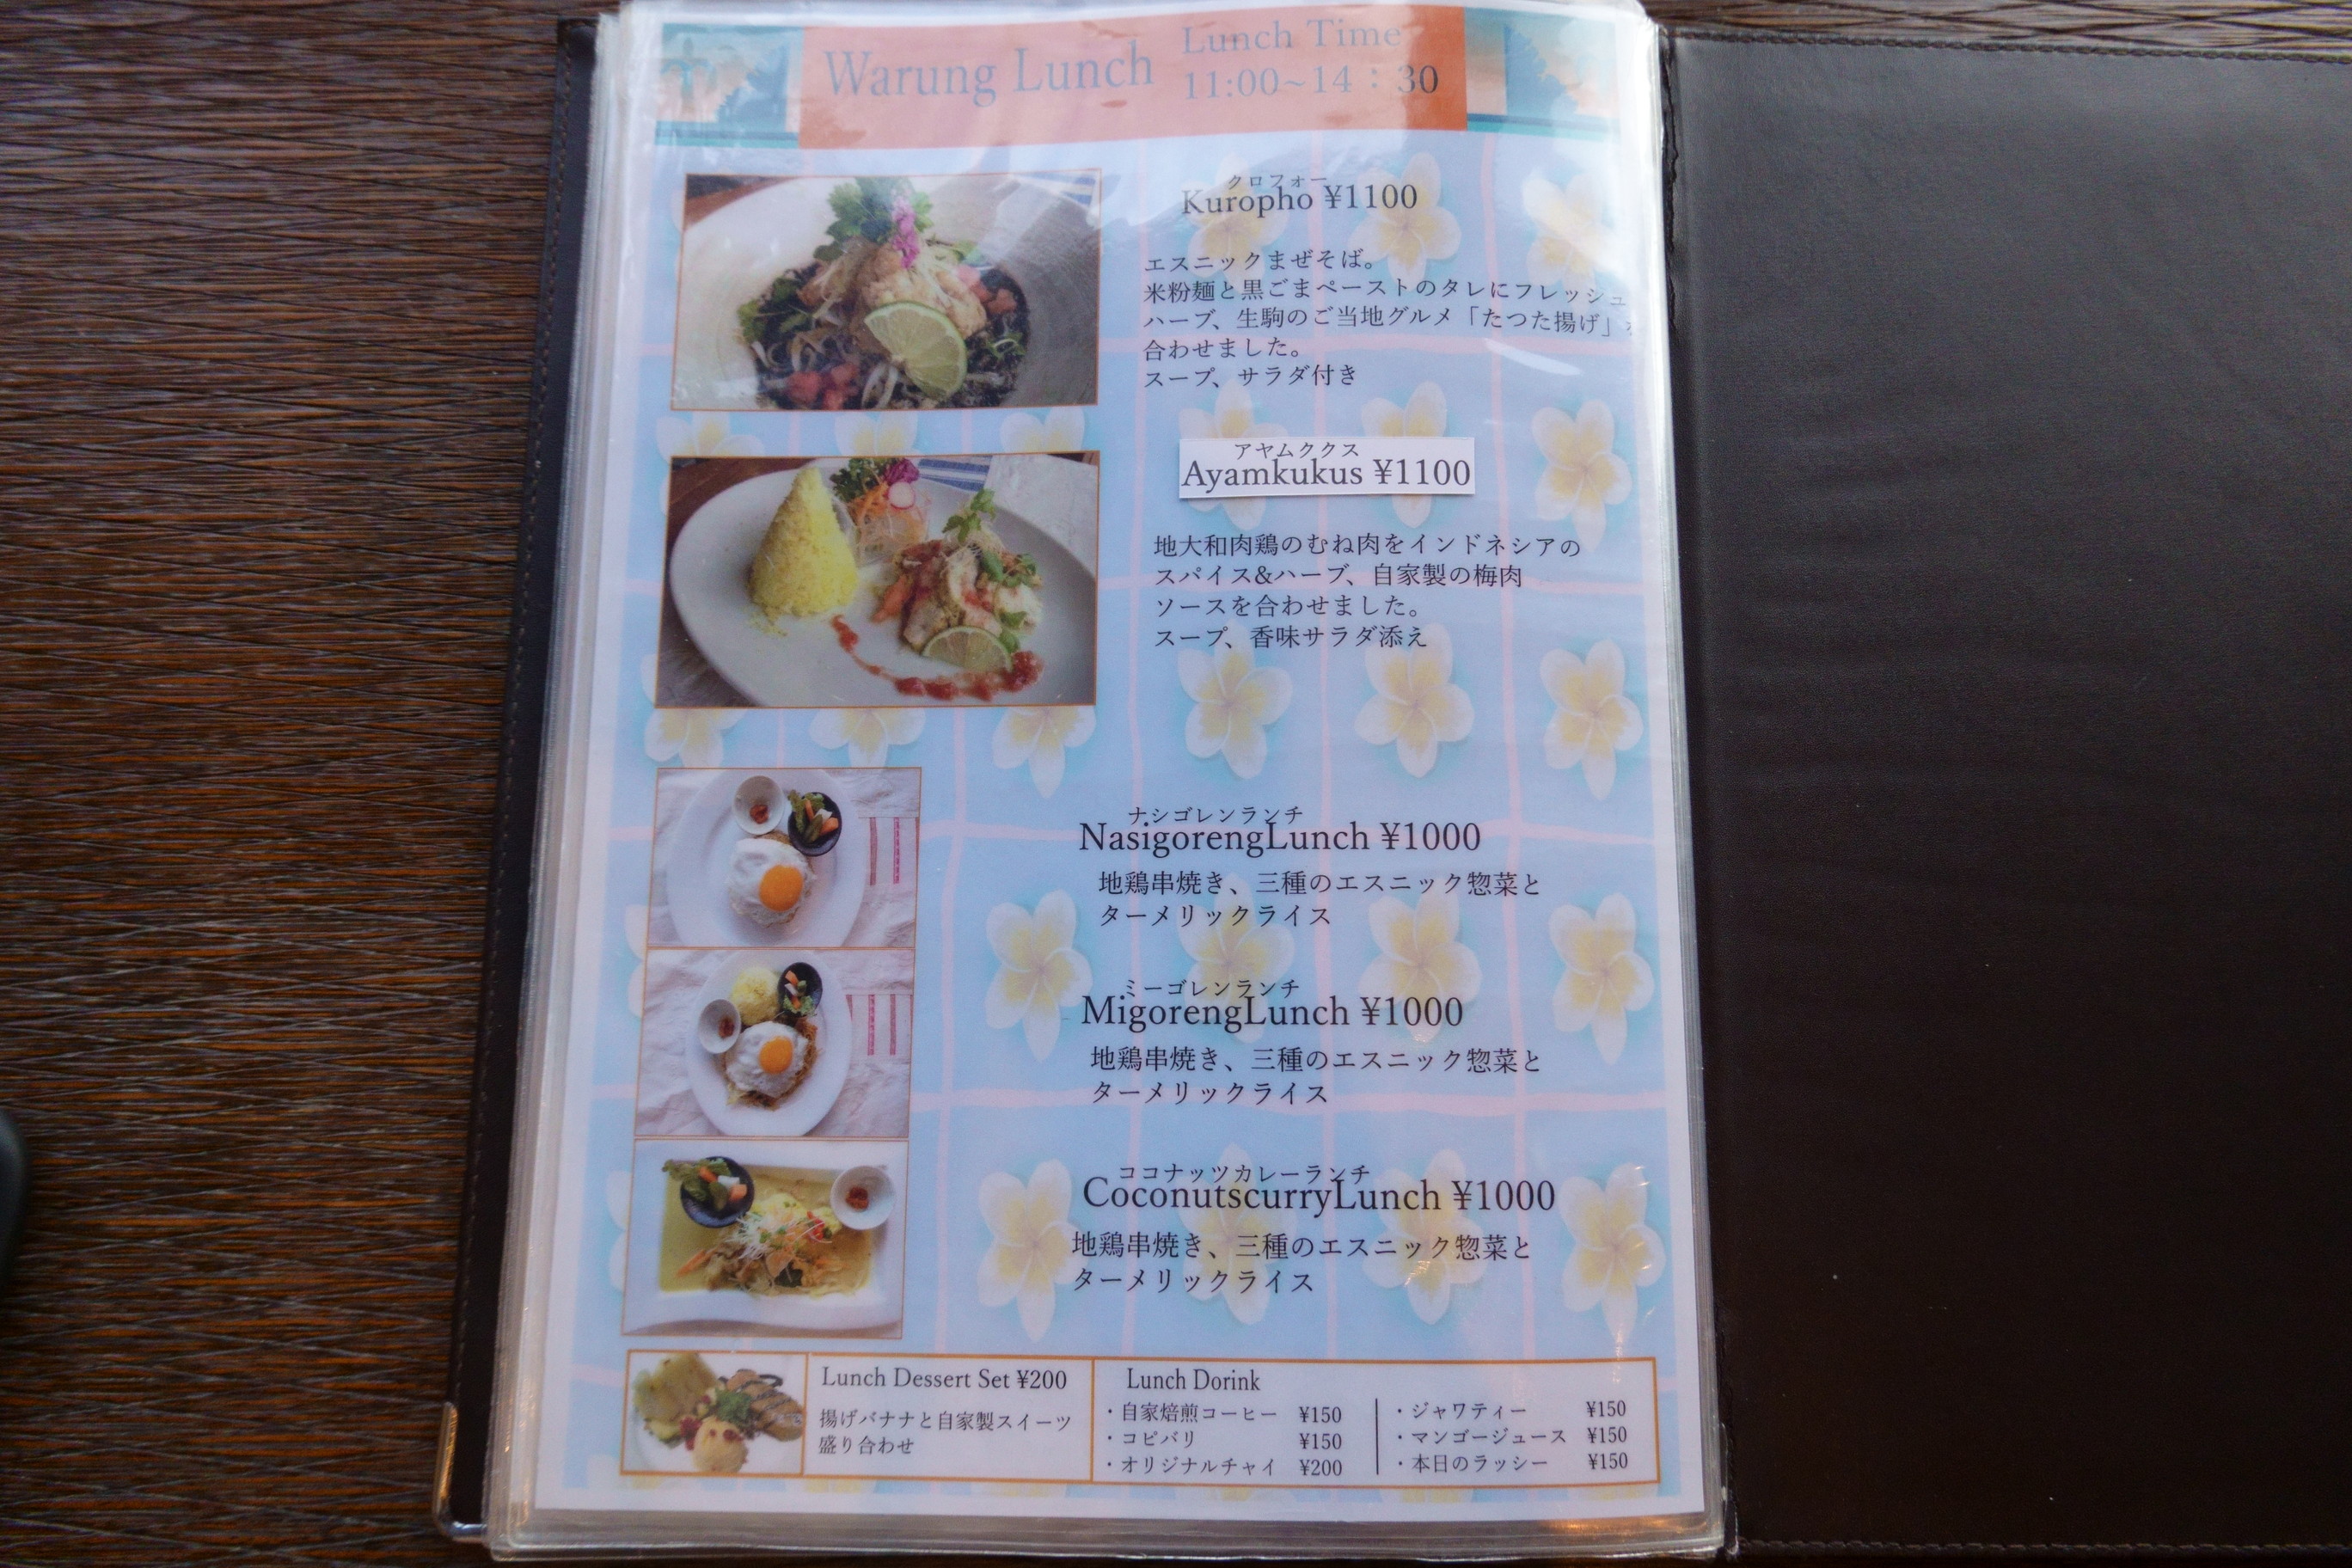 Warung Lunch
Lunch Time
11:00~14：30
クロフォー
Kuropho ¥1100
エスニックまぜそば。
米粉麺と黒ごまペーストのタレにフレッシュ
ハーブ、生駒のご当地グルメ「たつた揚げ」
合わせました。
スープ、サラダ付き
アヤムククス
Ayamkukus ¥1100
地大和肉鶏のむね肉をインドネシアの
スパイス&ハーブ、自家製の梅肉
ソースを合わせました。
スープ、香味サラダ添え
ナシゴレンランチ
NasigorengLunch ¥1000
地鶏串焼き、三種のエスニック惣菜と
ターメリックライス
ミーゴレンランチ
MigorengLunch ¥1000
地鶏串焼き、三種のエスニック惣菜と
ターメリックライス
ココナッツカレーランチ
CoconutscurryLunch ¥1000
地鶏串焼き、三種のエスニック惣菜と
ターメリックライス
Lunch Dessert Set ¥200
揚げバナナと自家製スイーツ
盛り合わせ
Lunch Dorink
・自家焙煎コーヒー ¥150
・コピバリ ¥150
・オリジナルチャイ ¥200
・ジャワティー ¥150
・マンゴージュース ¥150
・本日のラッシー ¥150